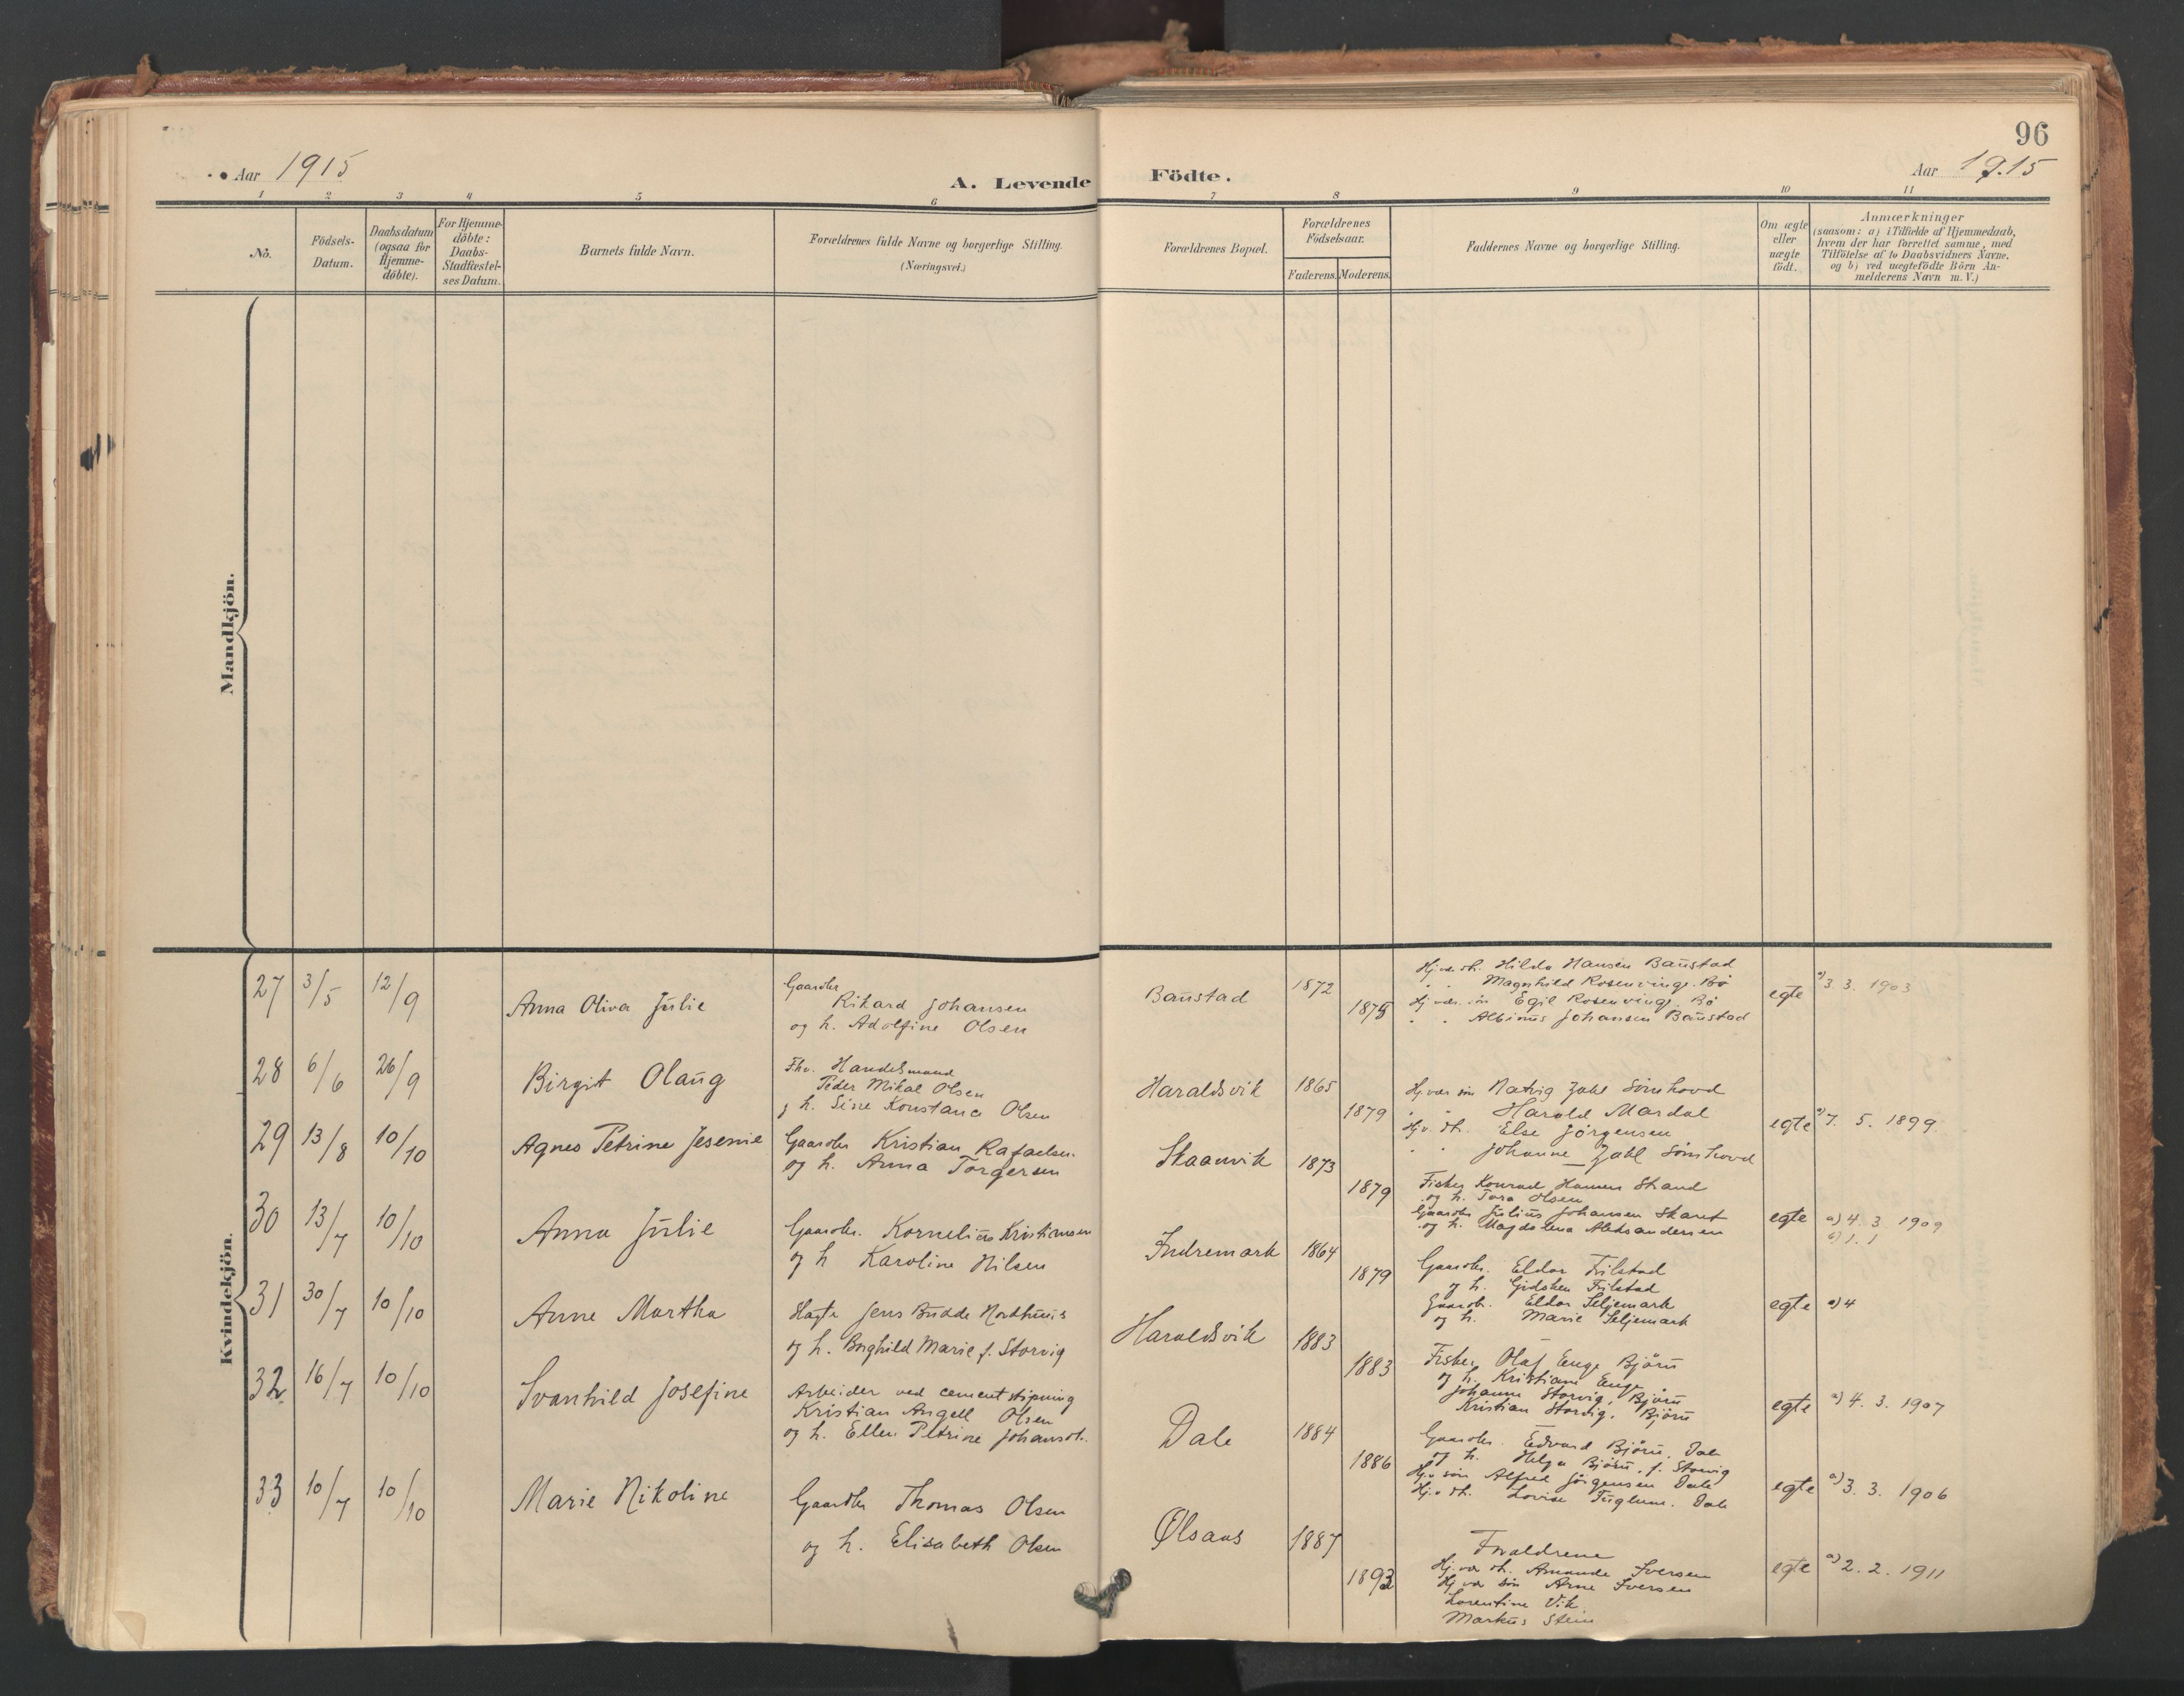 96
Aar 1915
A. Levende Födte.
Aar 1915
1 2 3 4 5 6 7 8 9 10 11
No.
Födsels-
Datum.
Daabsdatum
(ogsaa for
Hjemme-
döbte).
For Hjemme-
döbte:
Daabs-
Stadfæstel-
ses Datum.
Barnets fulde Navn.
Forældrenes fulde Navne og borgerlige Stilling.
(Næringsvei.)
Forældrenes Bopæl.
Forældrenes
Födselsaar.
Faderens. Moderens.
Faddernes Navne og borgerlige Stilling.
Om ægte
eller
uægte
födt.
Anmærkninger
(saasom: a) i Tilfælde af Hjemmedaab,
hvem der har forrettet samme, med
Tilföielse af to Daabsvidners Navne,
og b) ved uægtefödte Börn An-
melderens Navn m. V.)
Mandkjön.
Kvindekjön.
27 3/5 12/9 Anna Oliva Julie
Gaardbr
Rikard Johansen
og h. Adolfine Olsen
Baustad 1872 1875
Hj.v. dt. Hilda Hansen Baustad
" " Magnhild Rosenvinge. Bø
Hj.vær. søn Egil Rosenvinge. Bø
" " Albinus Johansen Baustad
egte a) 3. 3. 1903
28 6/6 26/9 Birgit Olaug
Fhv. Handelsmand
Peder Mikal Olsen
og h. Sine Konstance Olsen
Haraldsvik 1865 1879
Hj.vær søn Natvig Zahl Sørnhovd
" " Harald Mardal
Hj.v. dt. Else Jörgensen
" " Johanne Zahl Sørnhovd
egte a) 7. 5. 1899
29 13/8 10/10 Agnes Petrine Jesenie
Gaardbr Kristian Rafaelsen
og h. Anna Torgersen
Skaanvik 1873 1879
Fisker Konrad Hansen Strand
og h. Tora Olsen
Gaardbr Julius Johansen Skaret
og h. Magdalena Aleksandersen
egte a) 4. 3 1909
b) 1. 1
30 13/7 10/10 Anna Julie
Gaardbr. Kornelius Kristiansen
og h Karoline Nilsen
Indremark 1864 1879
Gaardbr. Eldor Frilstad
og h. Gidsken Frilstad
Gaardbr. Eldor Seljemark
og h. Marie Seljemark
egte a) 4
31 30/7 10/10 Anne Martha
Jens Budde Northuus
og h. Borghild Marie f. Storvig
Haraldsvik 1883 1883
Fisker Olaf Enge Bjørn
og h. Kristiane Enge
Johanne Storvig, Bjørn
Kristian Storvig, Bjørn
egte a) 4. 3. 1907
32 16/7 10/10 Svanhild Josefine
Arbeider ved cementstøpning
Kristian Angell Olsen
og h. Ellen Petrine Johansdt.
Dale 1884 1886
Gaardbr. Edvard Bjørn, Dale
og h. Helga Bjørn, f. Storvig
Hj.v. søn Alfred Jörgensen Dale
Hj.v. dt. Lovise Fuglum. Dale
egte a) 3. 3. 1906
33 10/7 10/10 Marie Nikoline
Gaardbr Thomas Olsen
og h. Elisabeth Olsen
Ølsaas 1887 1893
Forældrene
Hj.vær dt. Amanda Iversen
Hj.vær søn Arne Iversen
Lorentine Vik
Markus Stein
egte a) 2. 2. 1911